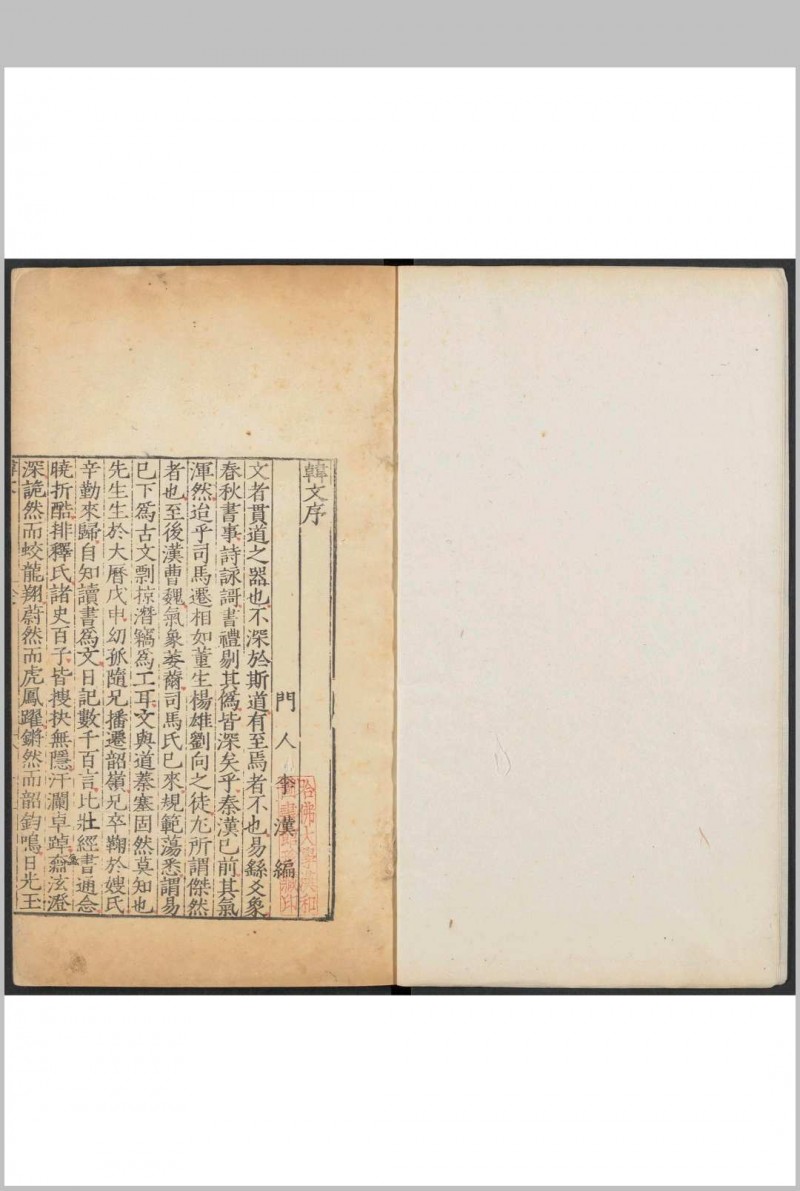 韓文序
門人李漢編
文者貫道之器也不深於斯道有至焉者不也易繇爻象
春秋書事詩詠謌書禮剔其偽皆深矣乎秦漢已前其氣
渾然迨乎司馬遷相如董生楊雄劉向之徒尤所謂傑然
者也至後漢曹魏氣象萎薾司馬氏已來規範蕩悉謂易
已下為古文剽掠潛竊為工耳文與道蓁塞固然莫知也
先生生於大曆戊申幼孤隨兄播遷韶嶺兄卒鞠於嫂氏
辛勤來歸自知讀書為文日記數千百言比壯經書通念
曉析酷排釋氏諸史百子皆搜抉無隱汗瀾卓踔奫泫澄
深詭然而蛟龍翔蔚然而虎鳳躍鏘然而韶鈞鳴日光玉
哈佛大學漢和
圖書館珍藏印